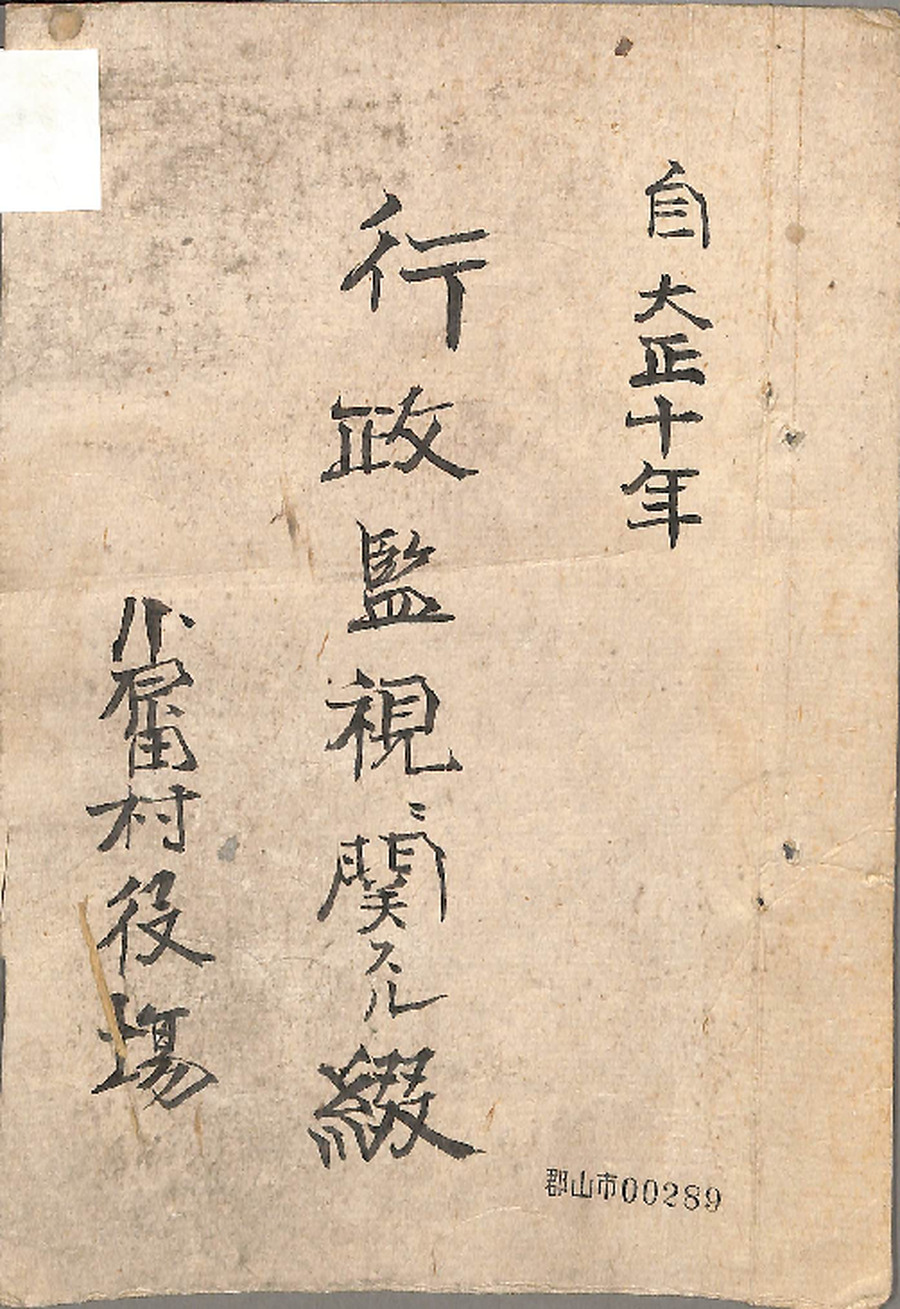 自大正十年
行政監視ニ関スル綴
小原田村役場
郡山市00289